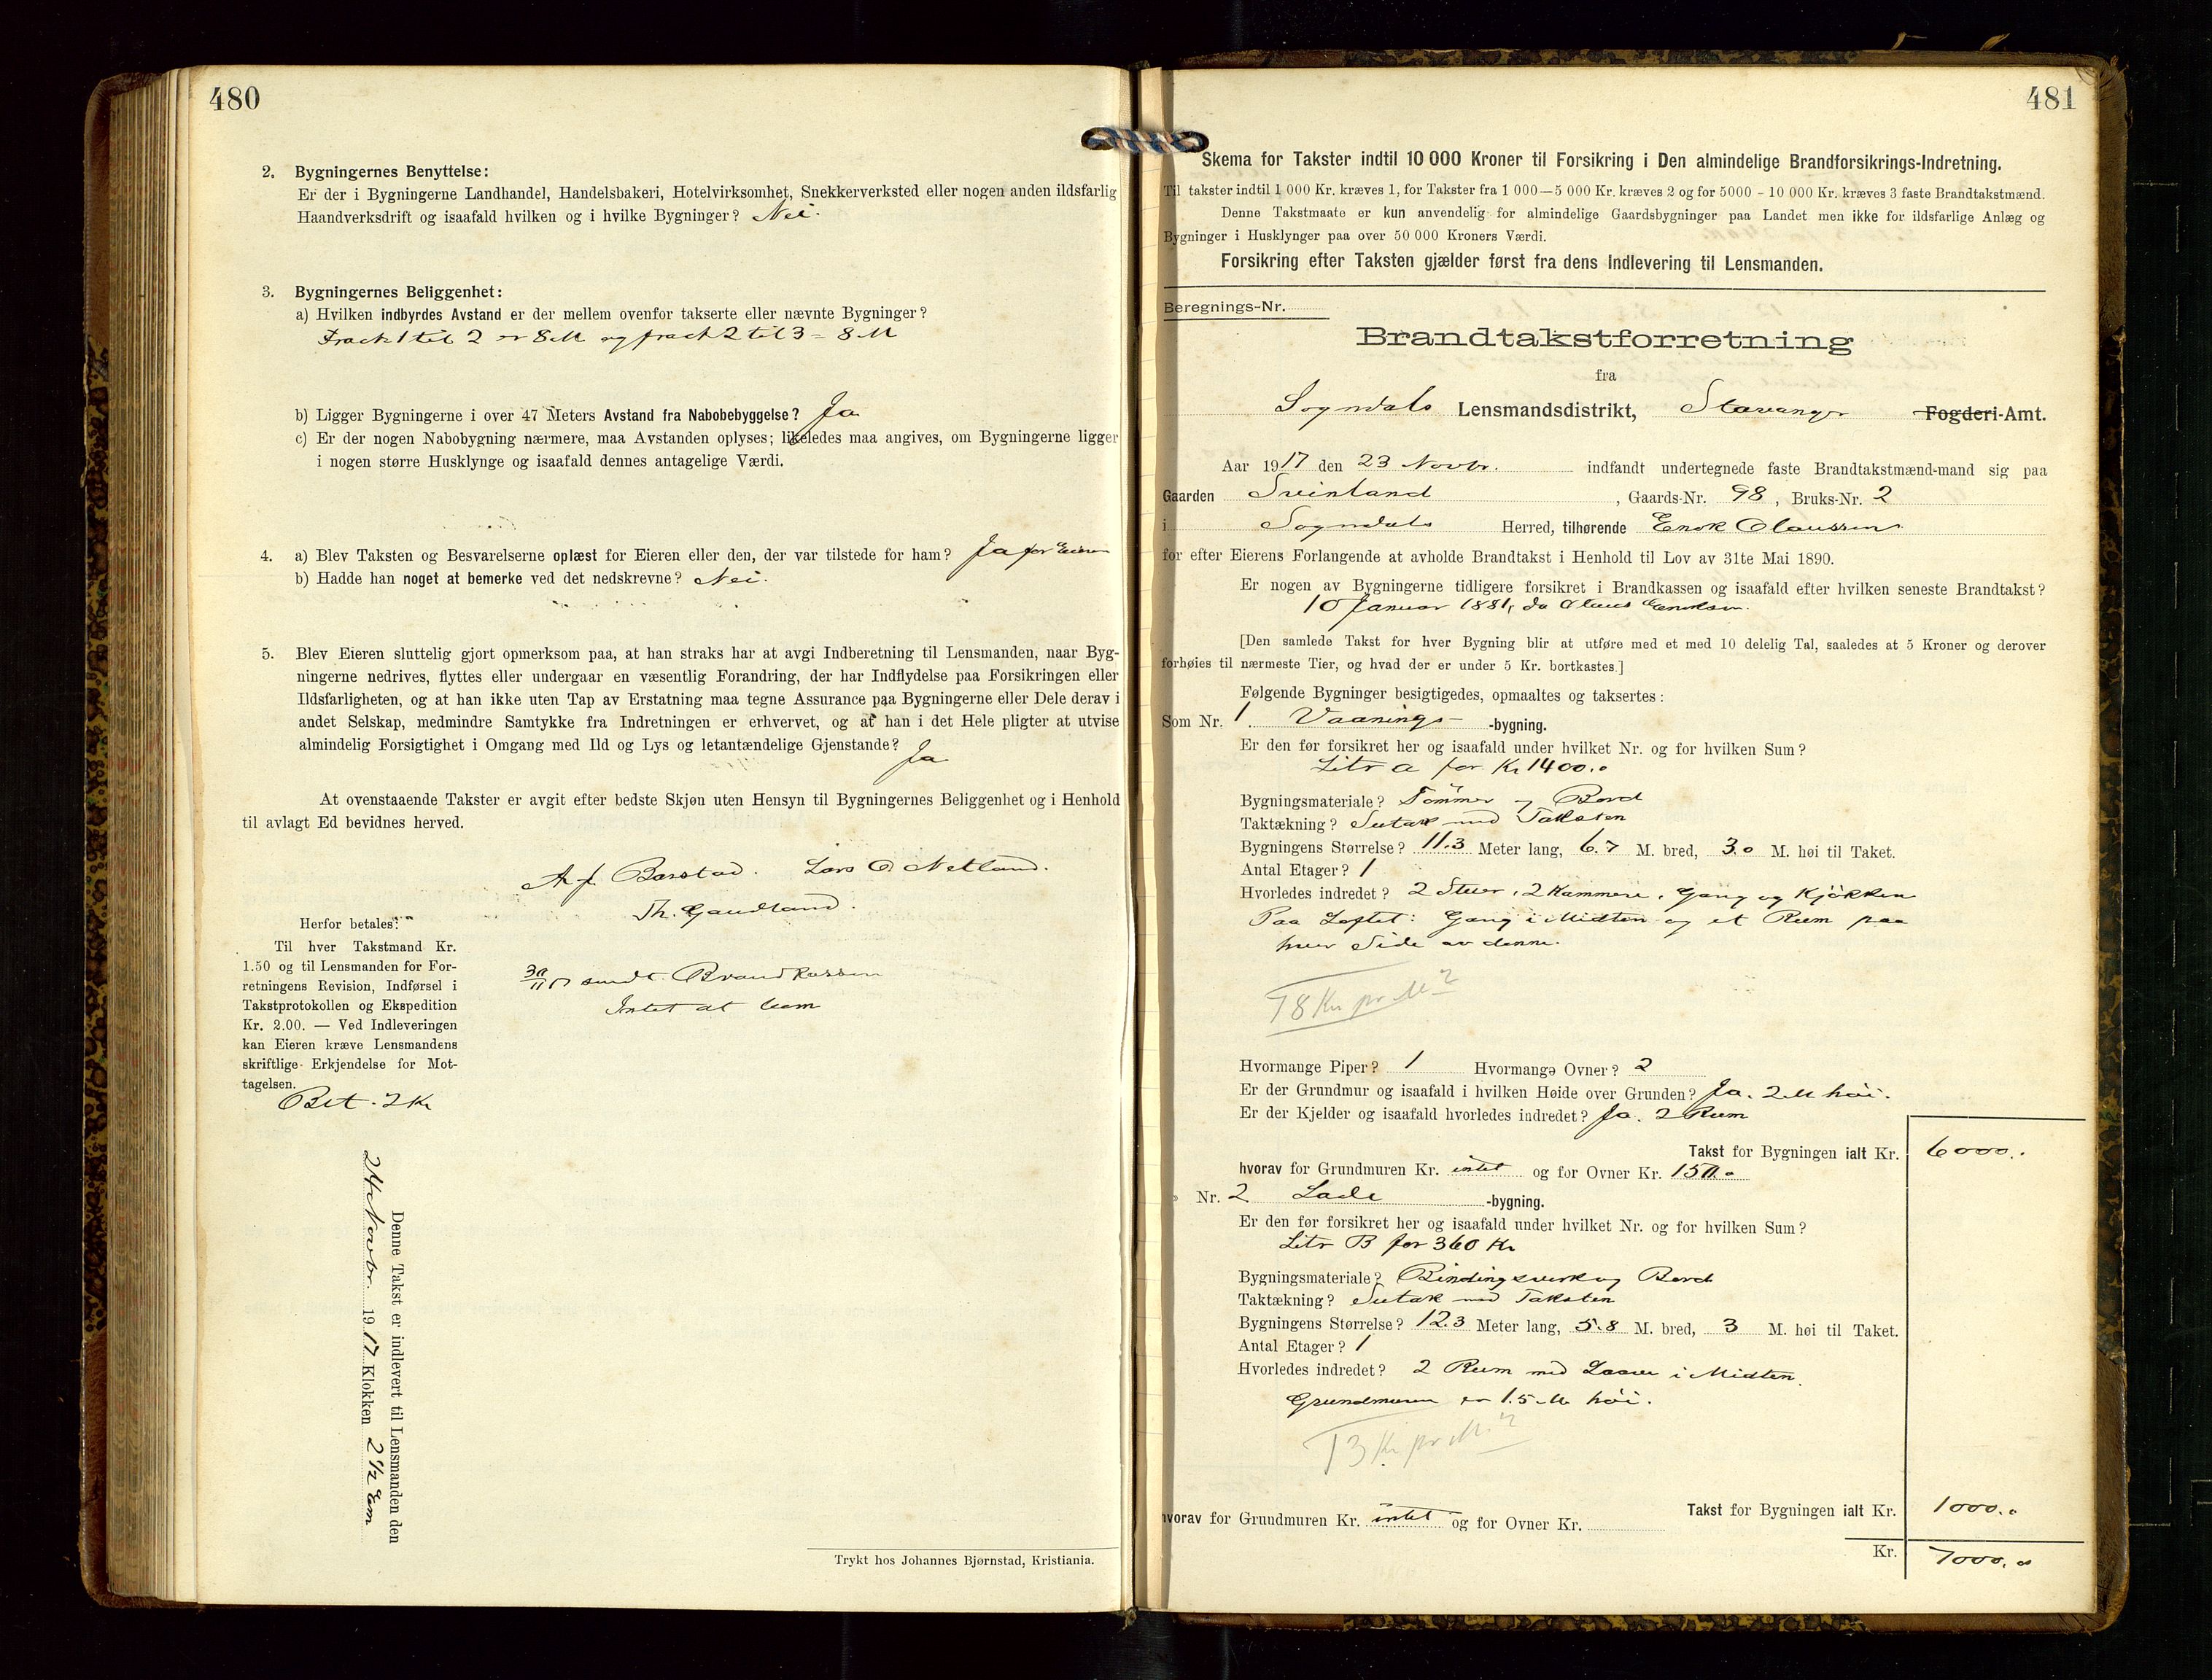 480
2. Bygningernes Benyttelse:
Er der i Bygningerne Landhandel, Handelsbakeri, Hotelvirksomhet, Snekkerverksted eller nogen anden ildsfarlig
Haandverksdrift og isaafald hvilken og i hvilke Bygninger? Nei.
3. Bygningernes Beliggenhet:
a) Hvilken indbyrdes Avstand er der mellem ovenfor takserte eller nævnte Bygninger?
Fra No 1 til 2 er 8 M og fra No 2 til 3 = 8 M
b) Ligger Bygningerne i over 47 Meters Avstand fra Nabobebyggelse? Ja
c) Er der nogen Nabobygning nærmere, maa Avstanden oplyses; likeledes maa angives, om Bygningerne ligger
i nogen større Husklynge og isaafald dennes antagelige Værdi.
4. a) Blev Taksten og Besvarelserne oplæst for Eieren eller den, der var tilstede for ham? Ja for Eieren
b) Hadde han noget at bemerke ved det nedskrevne? Nei.
5. Blev Eieren sluttelig gjort opmerksom paa, at han straks har at avgi Indberetning til Lensmanden, naar Byg-
ningerne nedrives, flyttes eller undergaar en væsentlig Forandring, der har Indflydelse paa Forsikringen eller
Ildsfarligheten, og at han ikke uten Tap av Erstatning maa tegne Assurance paa Bygningerne eller Dele derav i
andet Selskap, medmindre Samtykke fra Indretningen er erhvervet, og at han i det Hele pligter at utvise
almindelig Forsigtighet i Omgang med Ild og Lys og letantændelige Gjenstande? Ja
At ovenstaaende Takster er avgit efter bedste Skjøn uten Hensyn til Bygningernes Beliggenhet og i Henhold
til avlagt Ed bevidnes herved.
A. J. Barstad. Lars O. Netland.
Th. Gaudland.
Herfor betales:
Til hver Takstmand Kr.
1.50 og til Lensmanden for For-
retningens Revision, Indførsel i
Takstprotokollen og Ekspedition
Kr. 2.00. — Ved Indleveringen
kan Eieren kræve Lensmandens
skriftlige Erkjendelse for Mot-
tagelsen.
Bet. 2 Kr
30/11 17 sendt Brandkassen
Intet at bem
Denne Takst er indlevert til Lensmanden den
24 Novbr. 1917 Klokken 2 1/2 Em
Trykt hos Johannes Bjørnstad, Kristiania.
481
Skema for Takster indtil 10 000 Kroner til Forsikring i Den almindelige Brandforsikrings-Indretning.
Til takster indtil 1 000 Kr. kræves 1, for Takster fra 1 000—5 000 Kr. kræves 2 og for 5000 - 10 000 Kr. kræves 3 faste Brandtakstmænd.
Denne Takstmaate er kun anvendelig for almindelige Gaardsbygninger paa Landet men ikke for ildsfarlige Anlæg og
Bygninger i Husklynger paa over 50 000 Kroners Værdi.
Forsikring efter Taksten gjælder først fra dens Indlevering til Lensmanden.
Beregnings-Nr.
Brandtakstforretning
fra
Sogndals Lensmandsdistrikt, Stavanger Fogderi-Amt.
Aar 1917 den 23 Novbr. indfandt undertegnede faste Brandtakstmænd-mand sig paa
Gaarden Sveinland, Gaards-Nr. 98, Bruks-Nr. 2
i Sogndals Herred, tilhørende Enok Olaussens
for efter Eierens Forlangende at avholde Brandtakst i Henhold til Lov av 31te Mai 1890.
Er nogen av Bygningerne tidligere forsikret i Brandkassen og isaafald efter hvilken seneste Brandtakst?
10 Januar 1881, da Olaus Enoksen.
[Den samlede Takst for hver Bygning blir at utføre med et med 10 delelig Tal, saaledes at 5 Kroner og derover
forhøies til nærmeste Tier, og hvad der er under 5 Kr. bortkastes.]
Følgende Bygninger besigtigedes, opmaaltes og taksertes:
Som Nr. 1. Vaanings- -bygning.
Er den før forsikret her og isaafald under hvilket Nr. og for hvilken Sum?
Litr a for Kr 1400.0
Bygningsmateriale? Tømmer og Bord
Taktækning? Sutak med Taksten
Bygningens Størrelse? 11.3 Meter lang, 6.7 M. bred, 3.0 M. høi til Taket.
Antal Etager? 1
Hvorledes indredet? 2 Stuer, 2 Kammere, Gang og Kjøkken
Paa Loftet: Gang i Midten og et Rum paa
hver Side av denne.
78 Kr pr M²
Hvormange Piper? 1 Hvormange Ovner? 2
Er der Grundmur og isaafald i hvilken Høide over Grunden? Ja. 2 M høi.
Er der Kjelder og isaafald hvorledes indredet? Ja. 2 Rum
Takst for Bygningen ialt Kr. 6000..
hvorav for Grundmuren Kr. intet og for Ovner Kr. 150.0
Nr. 2 Lade -bygning.
Er den før forsikret her og isaafald under hvilket Nr. og for hvilken Sum?
Litr B for 360 Kr
Bygningsmateriale? Bindingsverk og Bord
Taktækning? Sutak med Taksten
Bygningens Størrelse? 12.3 Meter lang, 5.8 M. bred, 3 M. høi til Taket.
Antal Etager? 1
Hvorledes indredet? 2 Rum med Laave i Midten.
Grundmuren er 1.5 M høi.
13 Kr pr M²
Takst for Bygningen ialt Kr. 1000.0
hvorav for Grundmuren Kr. intet og for Ovner Kr.
Kr. 7000.0